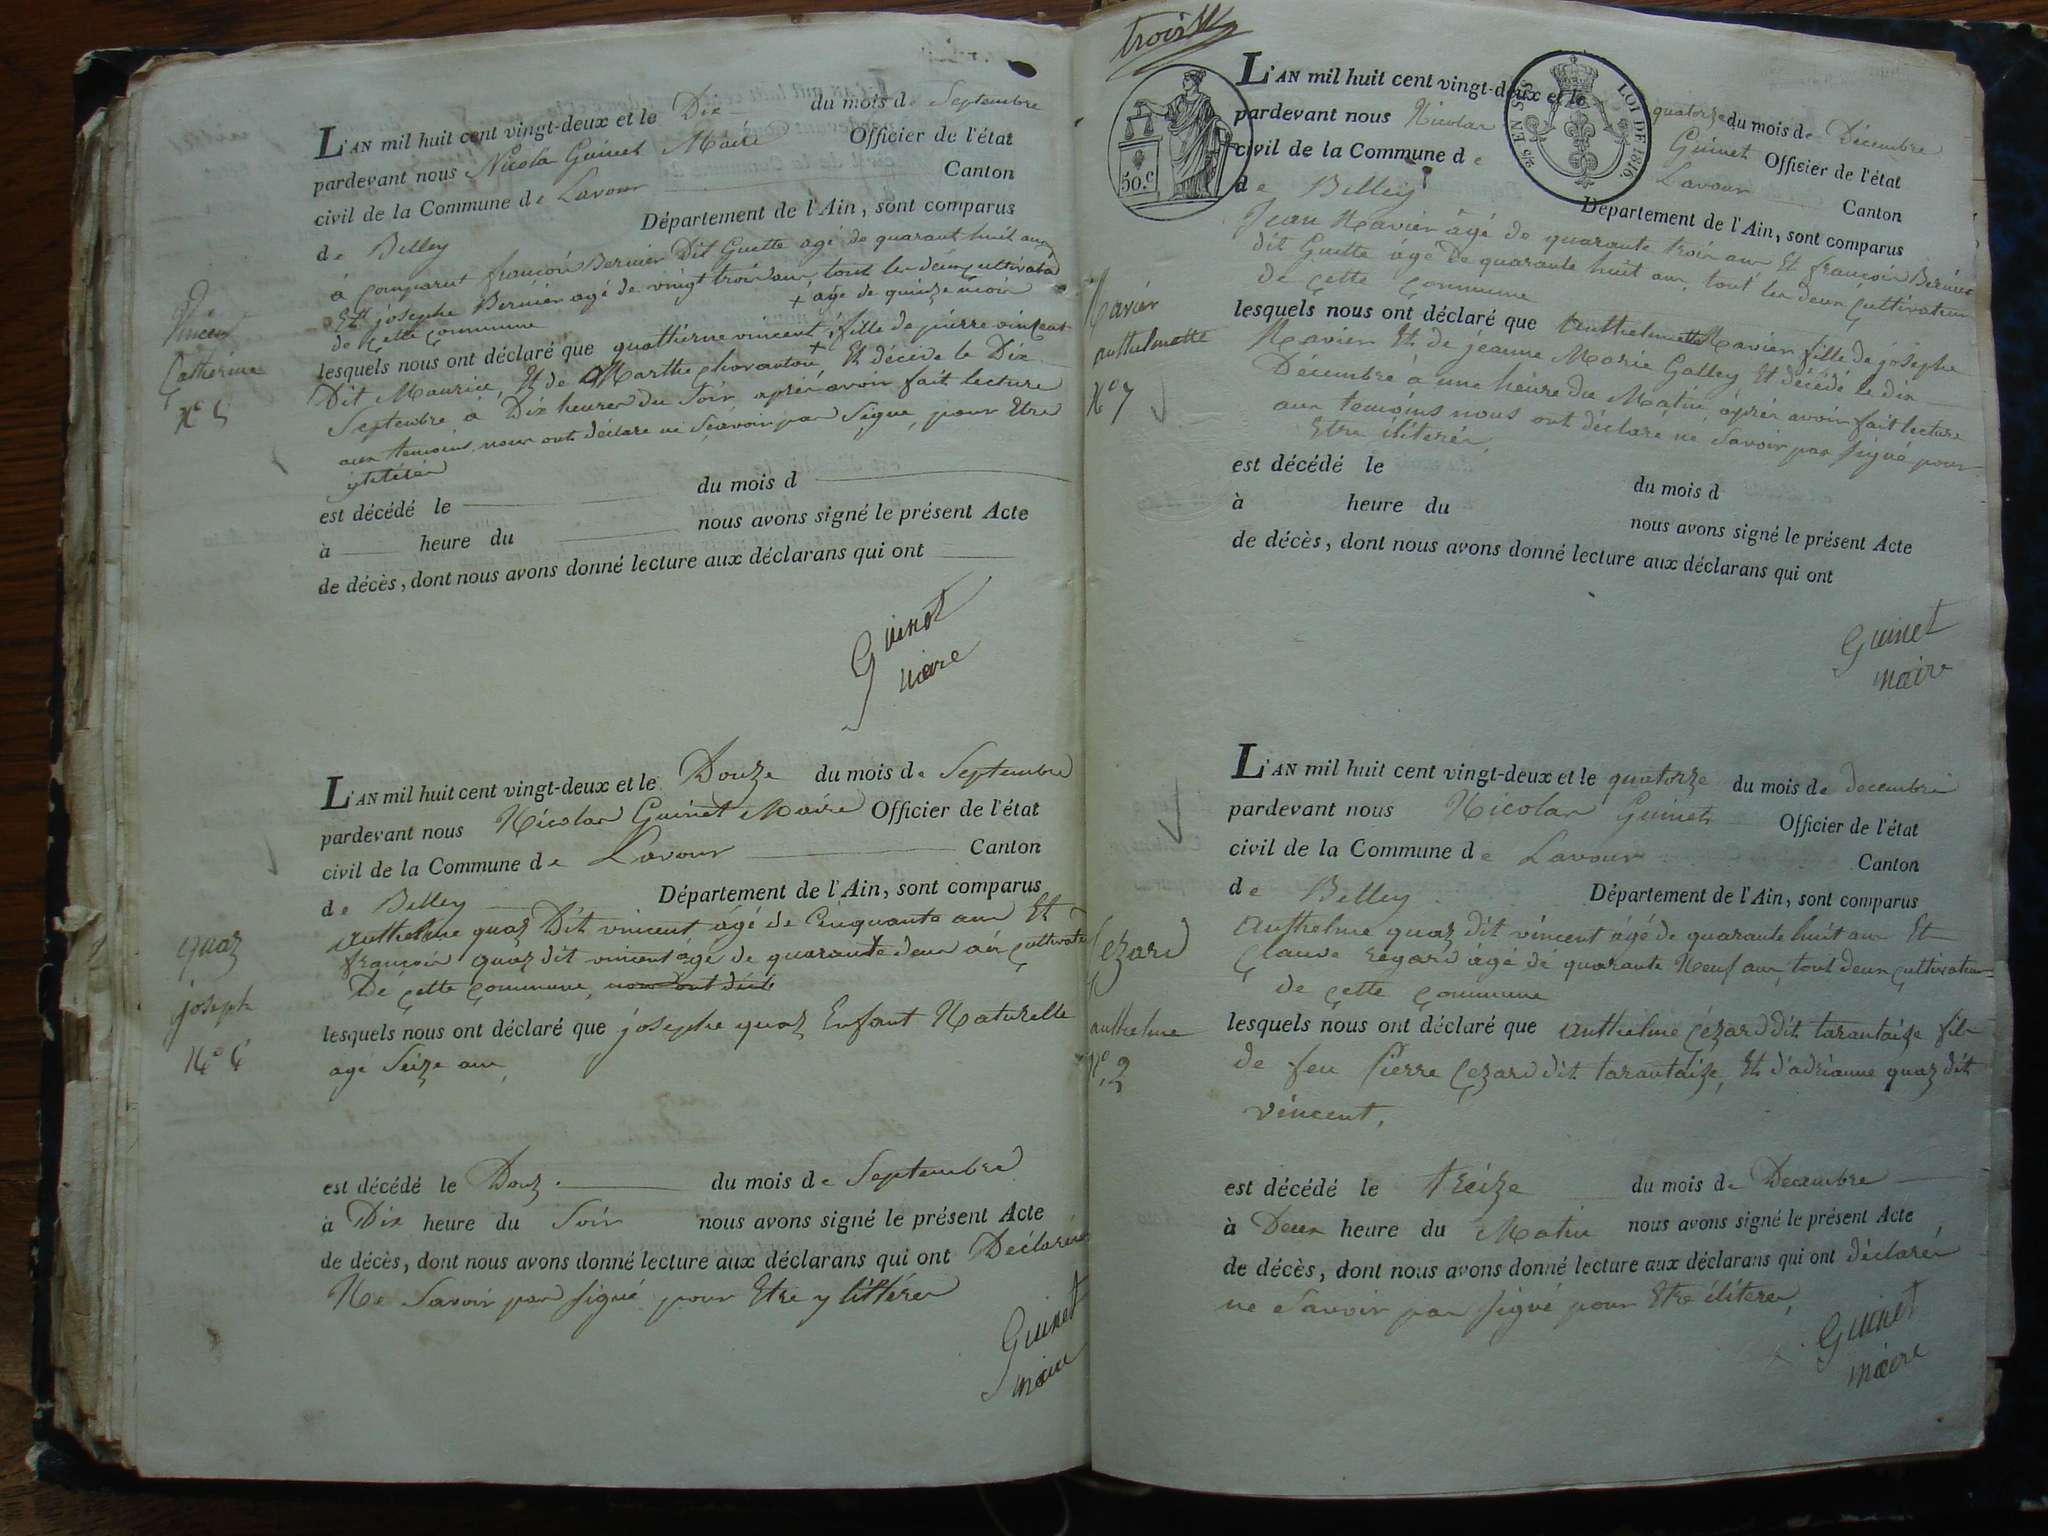 L'AN mil huit cent vingt-deux et le Dix du mois de Septembre
pardevant nous Nicola Guinet Maire Officier de l'état
civil de la Commune de Lavour Canton
de Belley Département de l'Ain, sont comparus
à comparut françois Bernier Dit Guette agé de quarant huit ans
Et josephe Bernier agé de vingt trois ans, tout les deux cultivateur
de çette çommune
+ agé de quinze mois
lesquels nous ont déclaré que quatherne vincent + fille de pierre vincent
Dit Maurice, Et de Marthe Et décédé le Dix
Septembre à Dix heures du Soir après avoir fait lecture
aux temoins nous ont déclaré ne Sçavoir pas Signe, pour Etre
ylitérés
est décédé le du mois d
à heure du nous avons signé le présent Acte
de décès, dont nous avons donné lecture aux déclarans qui ont
Guinet
maire
Vincent
Catherine
N° 5
L'AN mil huit cent vingt-deux et le Douze du mois de Septembre
pardevant nous Nicolas Guinet Maire Officier de l'état
civil de la Commune de Lavour Canton
de Belley Département de l'Ain, sont comparus
Anthelme quaz Dit vincent âgé de Cinquante ans Et
françois quaz dit vincent âgé de quarante deux ans çultivateur
De çette çommune, nous ont décla
lesquels nous ont déclaré que josephe quaz Enfant Naturelle
agé Seize ans
est décédé le Douz du mois de Septembre
à Dix heure du Soir nous avons signé le présent Acte
de décès, dont nous avons donné lecture aux déclarans qui ont Declarés
Ne Savoir pas signé pour Etre ylittérés
Guinet
maire
quaz
joseph
N° 6
trois
50.c
5/6 EN SUS
LOI DE 1816.
L'AN mil huit cent vingt-deux et le quatorze du mois de Décembre
pardevant nous Nicolas Guinet Officier de l'état
civil de la Commune de Lavour Canton
de Belley Département de l'Ain, sont comparus
Jean Navier âgé de quarante trois ans Et françois Bernier
dit Guitte âgé De quarante huit ans, tout les deux çultivateur
de çette çommune
lesquels nous ont déclaré que Anthelmette Navier fille de josephe
Navier Et de jeanne Marie Galley Et décédé le dix
Décembre à une heure du Matin, après avoir fait lecture
aux temoins nous ont déclaré ne Savoir pas signé pour
Etre iliterés,
est décédé le du mois d
à heure du nous avons signé le présent Acte
de décès, dont nous avons donné lecture aux déclarans qui ont
Guinet
maire
Navier
anthelmette
N° 7
L'AN mil huit cent vingt-deux et le quatorze du mois de decembre
pardevant nous Nicolas Guinet Officier de l'état
civil de la Commune de Lavour Canton
de Belley Département de l'Ain, sont comparus
Anthelme quaz dit vincent âgé de quarante huit ans Et
çlaude âgé de quarante Neuf ans, tout deux çultivateur
de çette çommune
lesquels nous ont déclaré que Anthelme çezard dit tarantaize fils
de feu Pierre çezard dit tarantaize, Et d'adrianne quaz dit
vincent,
est décédé le treize du mois de Decembre
à Deux heure du Matin nous avons signé le présent Acte
de décès, dont nous avons donné lecture aux déclarans qui ont déclarés
ne Savoir pas signé pour Etre iliterés,
Guinet
maire
Cezard
anthelme